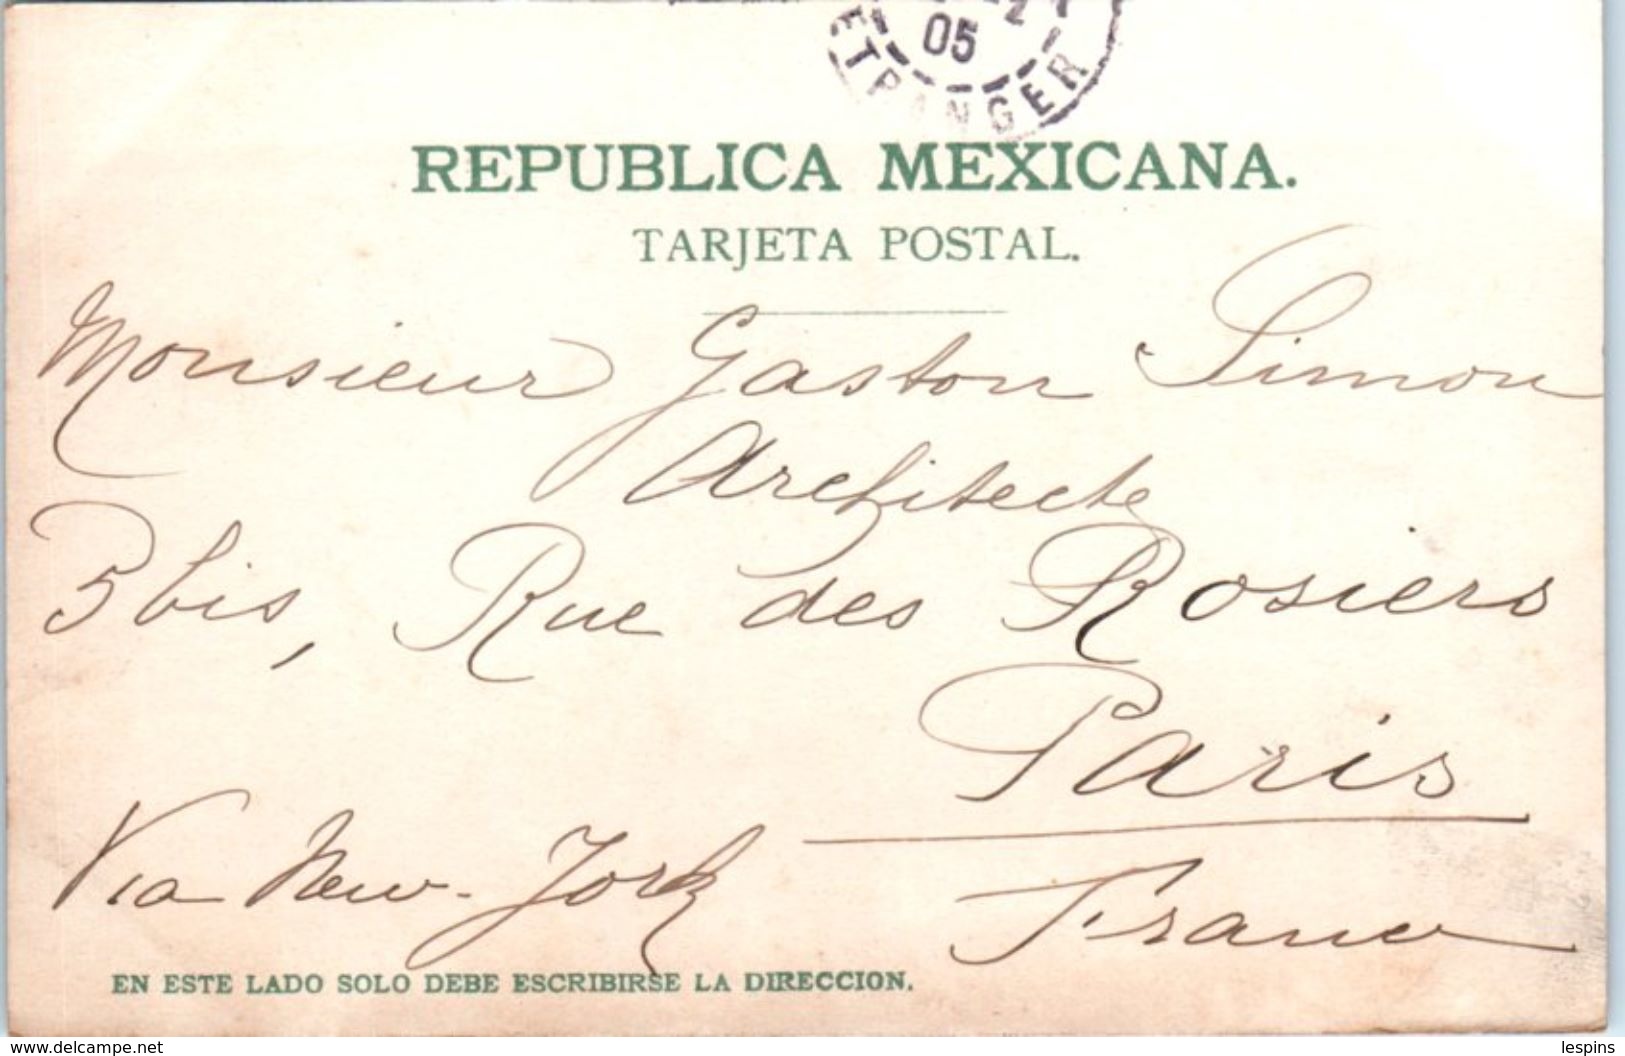 05
ETRANGER
REPUBLICA MEXICANA.
TARJETA POSTAL.
Monsieur Gaston Simon
Architecte
5 bis, Rue des Rosiers
Paris
Via New-York France
EN ESTE LADO SOLO DEBE ESCRIBIRSE LA DIRECCION.
www.delcampe.net
lespins